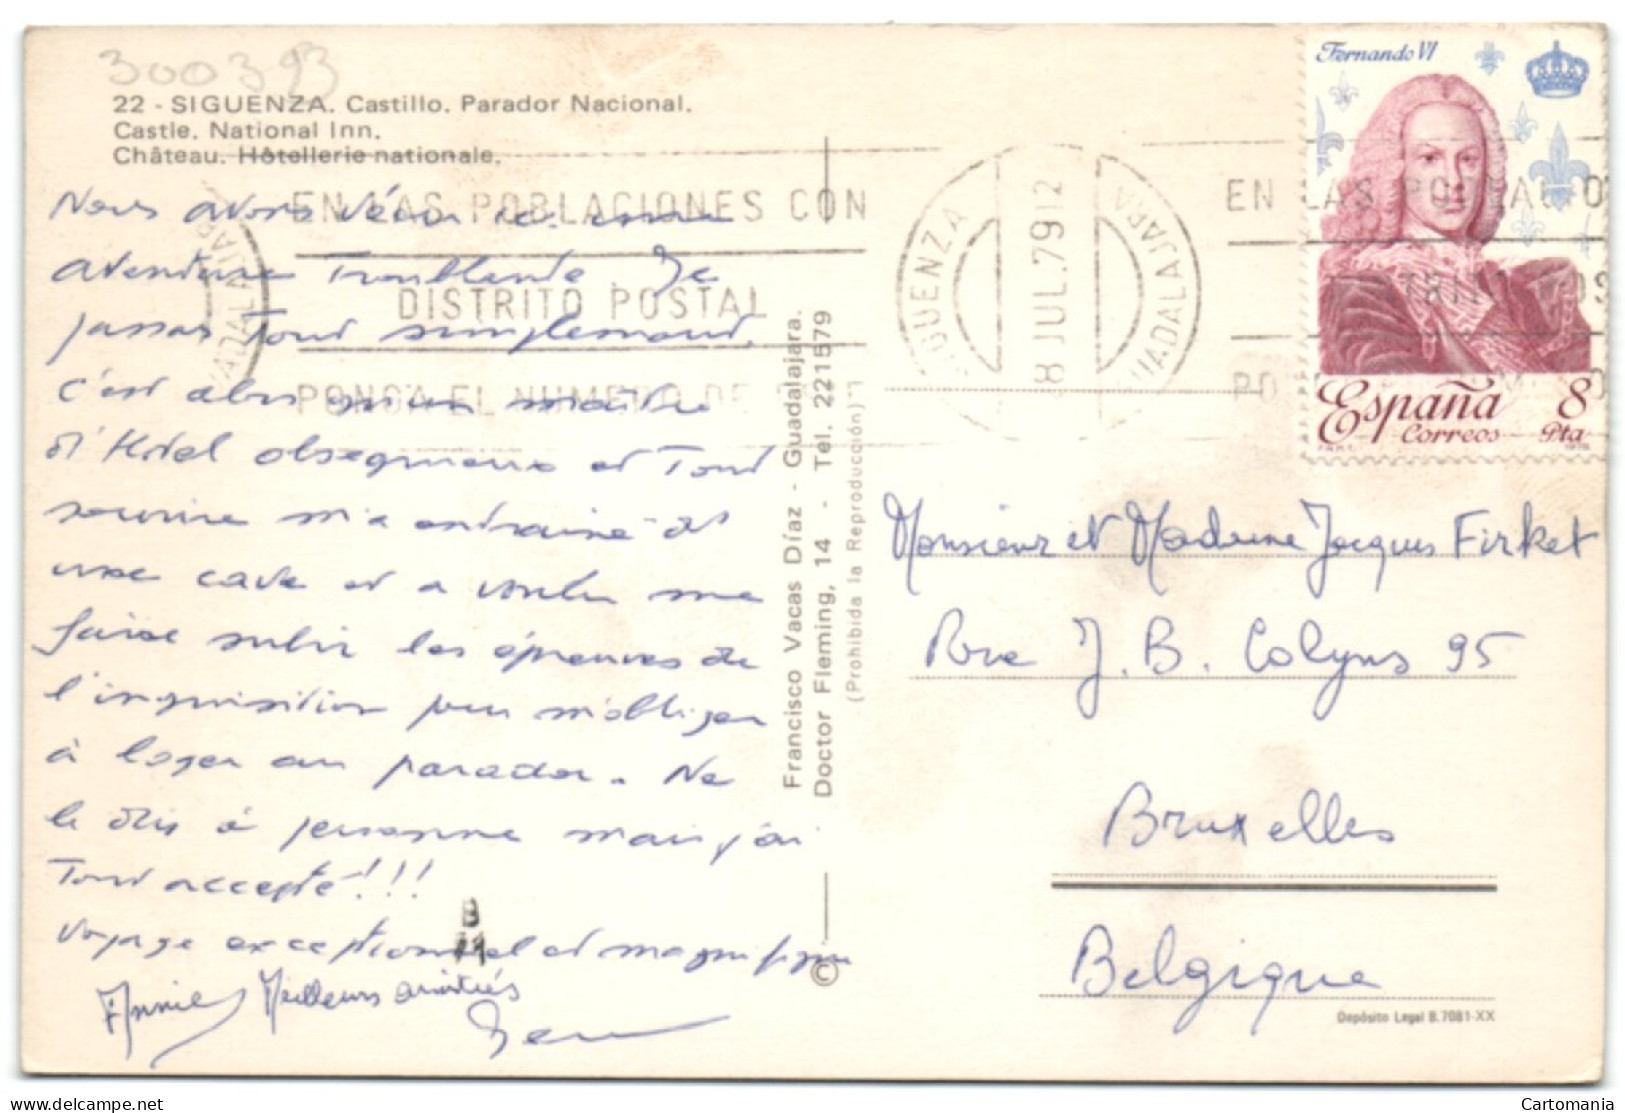 300393
22 - SIGUENZA. Castillo. Parador Nacional.
Castle. National Inn.
Château. Hôtellerie nationale.
Nous avons vécu ici une
aventure Troublante Je
passai tout simplement.
C'est alors qu'un maître
d'Hôtel obséquieux et Tout
sourire m'a entrainé ds
une cave et a voulu me
faire subir les épreuves de
l'inquisition pour m'obliger
à loger au parador. Ne
le dis à personne mais j'ai
Tout accepté!!!
Voyage exceptionnel et magnifique
Annie Meilleurs amitiés
B
Francisco Vacas Díaz - Guadalajara.
Doctor Fleming, 14 - Tel. 221579
(Prohibida la Reproducción)
©
EN LAS POBLACIONES CON
DISTRITO POSTAL
PONGA EL NUMERO DE
GUADALAJARA
SIGUENZA
8 JUL.79 12
GUADALAJARA
EN LAS POBLACIO
Fernando VI
España
Correos
8
Pta
Monsieur et Madame Jacques Firket
Rue J. B. Colyns 95
Bruxelles
Belgique
Depósito Legal B.7081-XX
www.delcampe.net
Cartomania